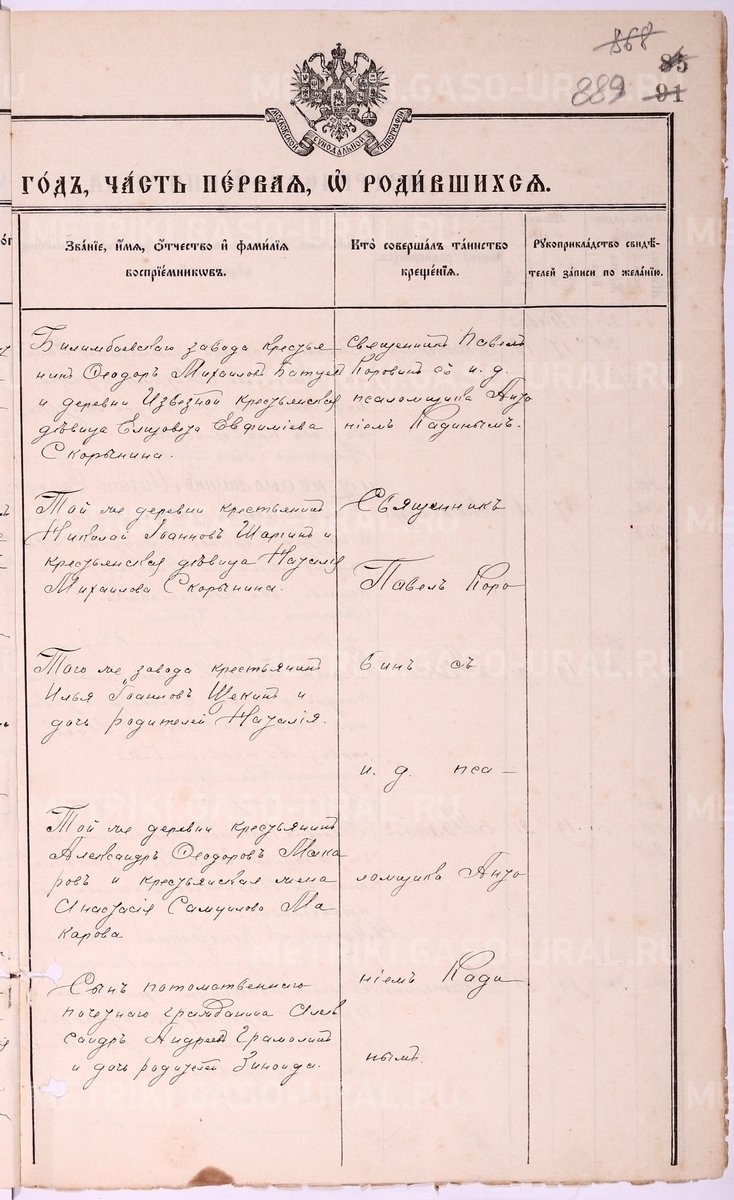 868
85
889 91
МОСКОВСКОЙ СѴНОДАЛЬНОЙ ТИПОГРАФІИ
ГО́ДЪ, ЧА́СТЬ ПЕ́РВАЯ, Ѡ҆ РОДИ́ВШИХСЯ.
Зва́нїе, и҆́мя, ѻ҆́тчество и҆ фами́лїя
воспрїе́мникѡвъ.
Кто̀ соверша́лъ та́инство
креще́нїя.
Рꙋкоприкла́дство свидѣ́-
телей за́писи по жела́нїю.
Билимбаевскаго завода крестья
нинъ Ѳеодоръ Михаиловъ
и деревни Извезной крестьянская
дѣвица Елизавета Евфиміева
Скорынина.
Священникъ Павелъ
Коровинъ съ и. д.
псаломщика Анто
ніемъ Кадинымъ.
Той же деревни крестьянинъ
Николай Іоанновъ и
крестьянская дѣвица Наталія
Михаилова Скорынина.
Того же завода крестьянинъ
Илья Іоанновъ Щекинъ и
дочь родителей Наталія.
Той же деревни крестьянинъ
Александръ Ѳеодоровъ Мака
ровъ и крестьянская жена
Анастасія Самуилова Ма
карова
Сынъ потомственнаго
почетнаго гражданина Алек
сандръ Андреевъ
и дочь родителей Зинаида.
Священникъ
Павелъ Коро
винъ съ
и. д. пса-
ломщика Анто
ніемъ Кади
нымъ.
METRIKI.GASO-URAL.RU